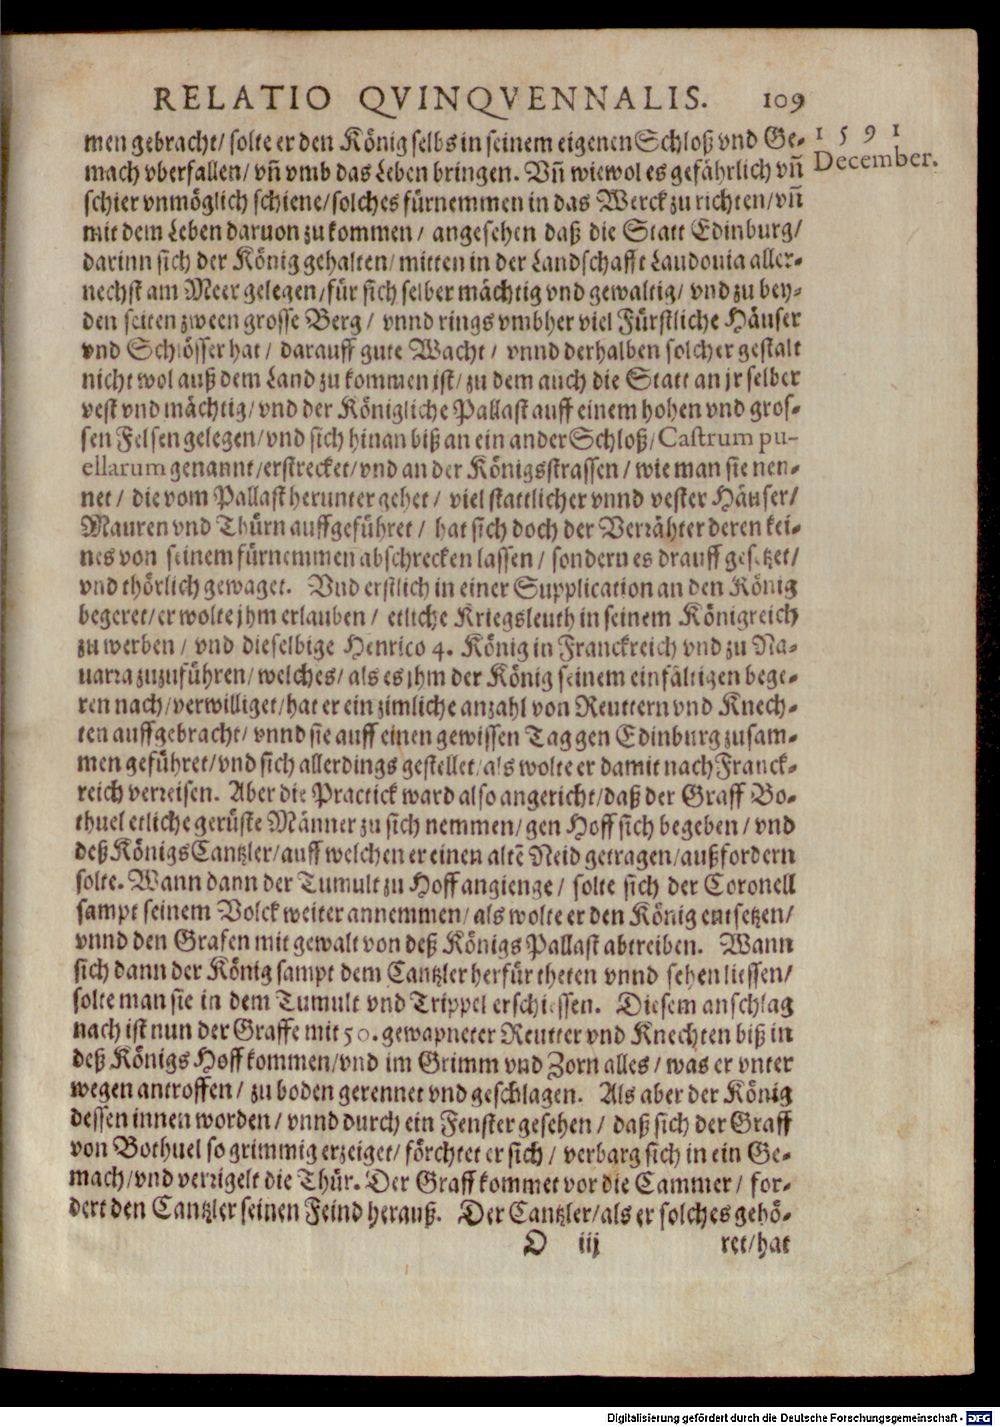 RELATIO QVINQVENNALIS. 109
1591
December.
men gebracht/ solte er den König selbs in seinem eigenen Schloß vnd Ge-
mach vberfallen/ vñ vmb das Leben bringen. Vñ wiewol es gefährlich vñ
schier vnmöglich schiene/ solches fürnemmen in das Werck zu richten/ vñ
mit dem Leben daruon zu kommen/ angesehen daß die Statt Edinburg/
darinn sich der König gehalten/ mitten in der Landschafft Laudonia aller-
nechst am Meer gelegen/ für sich selber mächtig vnd gewaltig/ vnd zu bey-
den seiten zween grosse Berg/ vnnd rings vmbher viel Fürstliche Häuser
vnd Schlösser hat/ darauff gute Wacht/ vnnd derhalben solcher gestalt
nicht wol auß dem Land zu kommen ist/ zu dem auch die Statt an jr selber
vest vnd mächtig/ vnd der Königliche Pallast auff einem hohen vnd gros-
sen Felsen gelegen/ vnd sich hinan biß an ein ander Schloß/ Castrum pu-
ellarum genannt/ erstrecket/ vnd an der Königsstrassen/ wie man sie nen-
net/ die vom Pallast herunter gehet/ viel stattlicher vnnd vester Häuser/
Mauren vnd Thürn auffgeführet/ hat sich doch der Verrähter deren kei-
nes von seinem fürnemmen abschrecken lassen/ sondern es drauff gesetzet/
vnd thörlich gewaget. Vnd erstlich in einer Supplication an den König
begeret/ er wolte jhm erlauben/ etliche Kriegsleuth in seinem Königreich
zu werben/ vnd dieselbige Henrico 4. König in Franckreich vnd zu Na-
uarra zuzuführen/ welches/ als es jhm der König seinem einfältigen bege-
ren nach/ verwilliget/ hat er ein zimliche anzahl von Reuttern vnd Knech-
ten auffgebracht/ vnnd sie auff einen gewissen Tag gen Edinburg zusam-
men geführet/ vnd sich allerdings gestellet/ als wolte er damit nach Franck-
reich verreisen. Aber die Practick ward also angericht/ daß der Graff Bo-
thuel etliche gerüste Männer zu sich nemmen/ gen Hoff sich begeben/ vnd
deß Königs Cantzler/ auff welchen er einen altẽ Neid getragen/ außfordern
solte. Wann dann der Tumult zu Hoff angienge/ solte sich der Coronell
sampt seinem Volck weiter annemmen/ als wolte er den König entsetzen/
vnnd den Grafen mit gewalt von deß Königs Pallast abtreiben. Wann
sich dann der König sampt dem Cantzler herfür theten vnnd sehen liessen/
solte man sie in dem Tumult vnd Trippel erschiessen. Diesem anschlag
nach ist nun der Graffe mit 50. gewapneter Reutter vnd Knechten biß in
deß Königs Hoff kommen/ vnd im Grimm vnd Zorn alles/ was er vnter
wegen antroffen/ zu boden gerennet vnd geschlagen. Als aber der König
dessen innen worden/ vnnd durch ein Fenster gesehen/ daß sich der Graff
von Bothuel so grimmig erzeiget/ förchtet er sich/ verbarg sich in ein Ge-
mach/ vnd verrigelt die Thür. Der Graff kommet vor die Cammer/ for-
dert den Cantzler seinen Feind herauß. Der Cantzler/ als er solches gehö-
O iij ret/ hat
Digitalisierung gefördert durch die Deutsche Forschungsgemeinschaft - DFG